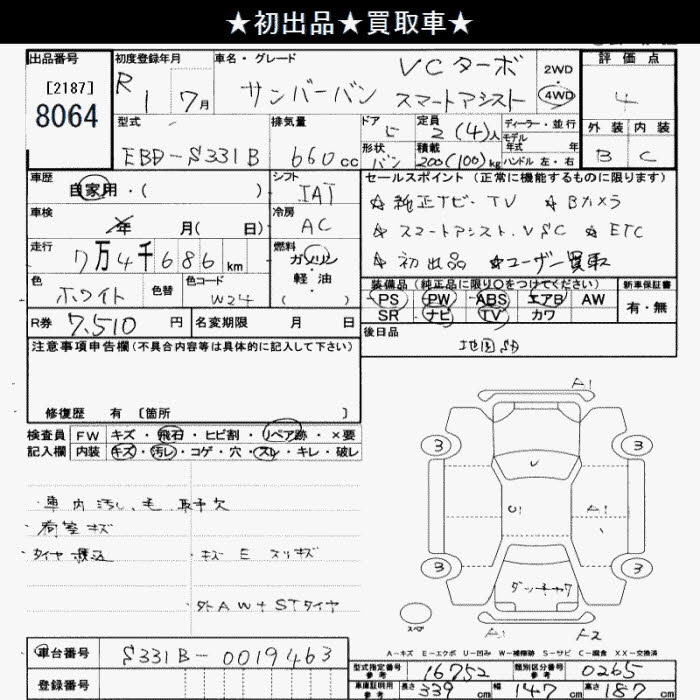 ★初出品★買取車★
出品番号 初度登録年月 車名・グレード VCターボ 2WD 評価点
[2187] R 1 7月 サンバーバン スマートアシスト 4WD 4
8064 型式 排気量 ドア 定員 2(4)人 ディーラー・並行 外装 内装
モデル年式 年
EBD-S331B 660cc 形状 バン 積載 200(100)kg ハンドル 左・右 B C
車歴 自家用・( ) シフト IAT セールスポイント (正常に機能するものに限ります)
☆純正ナビ・TV ☆Bカメラ
車検 年 月( 日) 冷房 AC ☆スマートアシスト.VSC ☆ETC
走行 7万4千686km 燃料 ガソリン・軽油 ( ) ☆初出品 ☆ユーザー買取
色 ホワイト 色替 色コード W24 装備品 (純正品に限り○をつけてください) 新車保証書
PS PW ABS エアB AW 有・無
R券 7,510円 名変期限 月 日 SR ナビ TV カワ
注意事項申告欄(不具合内容等は具体的に記入して下さい) 後日品
地図SD
修復歴 有 〔箇所 〕
検査員 FW キズ・飛石・ヒビ割・リペア跡・×要
記入欄 内装 キズ・汚レ・コゲ・穴・スレ・キレ・破レ
A1
3 3
・車内汚レ、毛、取手欠
・荷室キズ
U1 A1
・タイヤ積込 ・キズE スリキズ
3 3
ダッチャク
・外AW+STタイヤ
スペア A1 A2
A-キズ E-エクボ U-凹み W-補修跡 S-サビ C-腐食 XX-交換済
車台番号 S331B-0019463
型式指定番号 参考 16752 類別区分番号 参考 0265
登録番号 車庫証明用 参考 長さ 339cm 幅 147cm 高さ 187cm